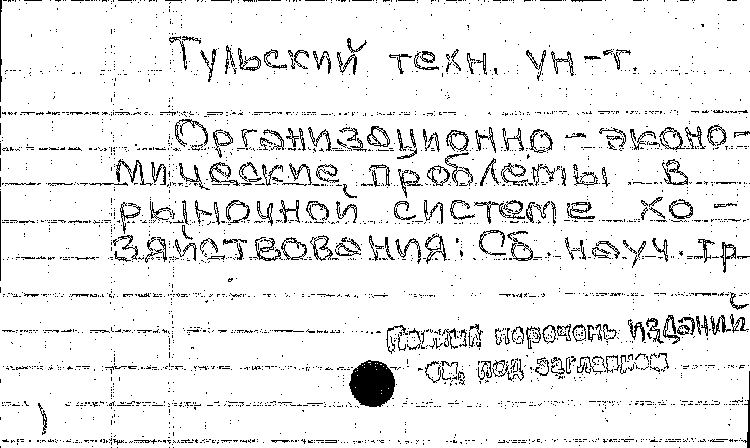 Тульский техн. ун-т.
Организационно-эконо-
мические проблемы в
рыночной системе хо-
зяйствования: Сб. науч. тр
Полный перечень изданий
см. под заглавием
)